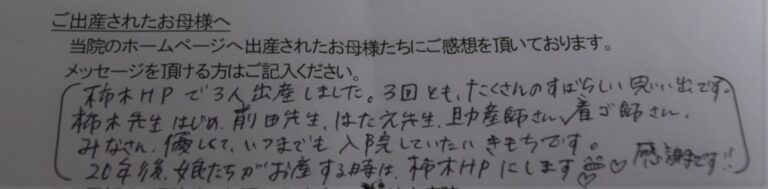 ご出産されたお母様へ
当院のホームページへ出産されたお母様たちにご感想を頂いております。
メッセージを頂ける方はご記入ください。
柿木HPで3人出産しました。3回とも、たくさんのすばらしい思い出です。
柿木先生はじめ、前田先生、はた元先生、助産師さん、看ゴ師さん、
みなさん優しくて、いつまでも入院していたいきもちです。
20年後、娘たちがお産する時は、柿木HPにします♡ 感謝です!!